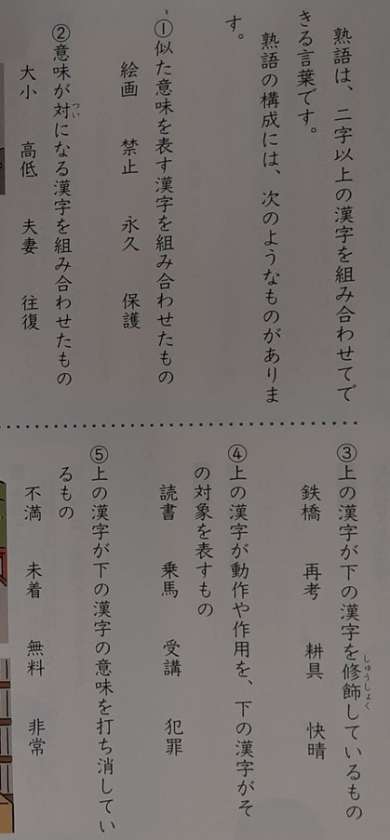 熟語は、二字以上の漢字を組み合わせてで
きる言葉です。
熟語の構成には、次のようなものがありま
す。
①似た意味を表す漢字を組み合わせたもの
絵画 禁止 永久 保護
②意味が対になる漢字を組み合わせたもの
つい
大小 高低 夫妻 往復
③上の漢字が下の漢字を修飾しているもの
しゅうしょく
鉄橋 再考 耕具 快晴
④上の漢字が動作や作用を、下の漢字がそ
の対象を表すもの
読書 乗馬 受講 犯罪
⑤上の漢字が下の漢字の意味を打ち消してい
るもの
不満 未着 無料 非常